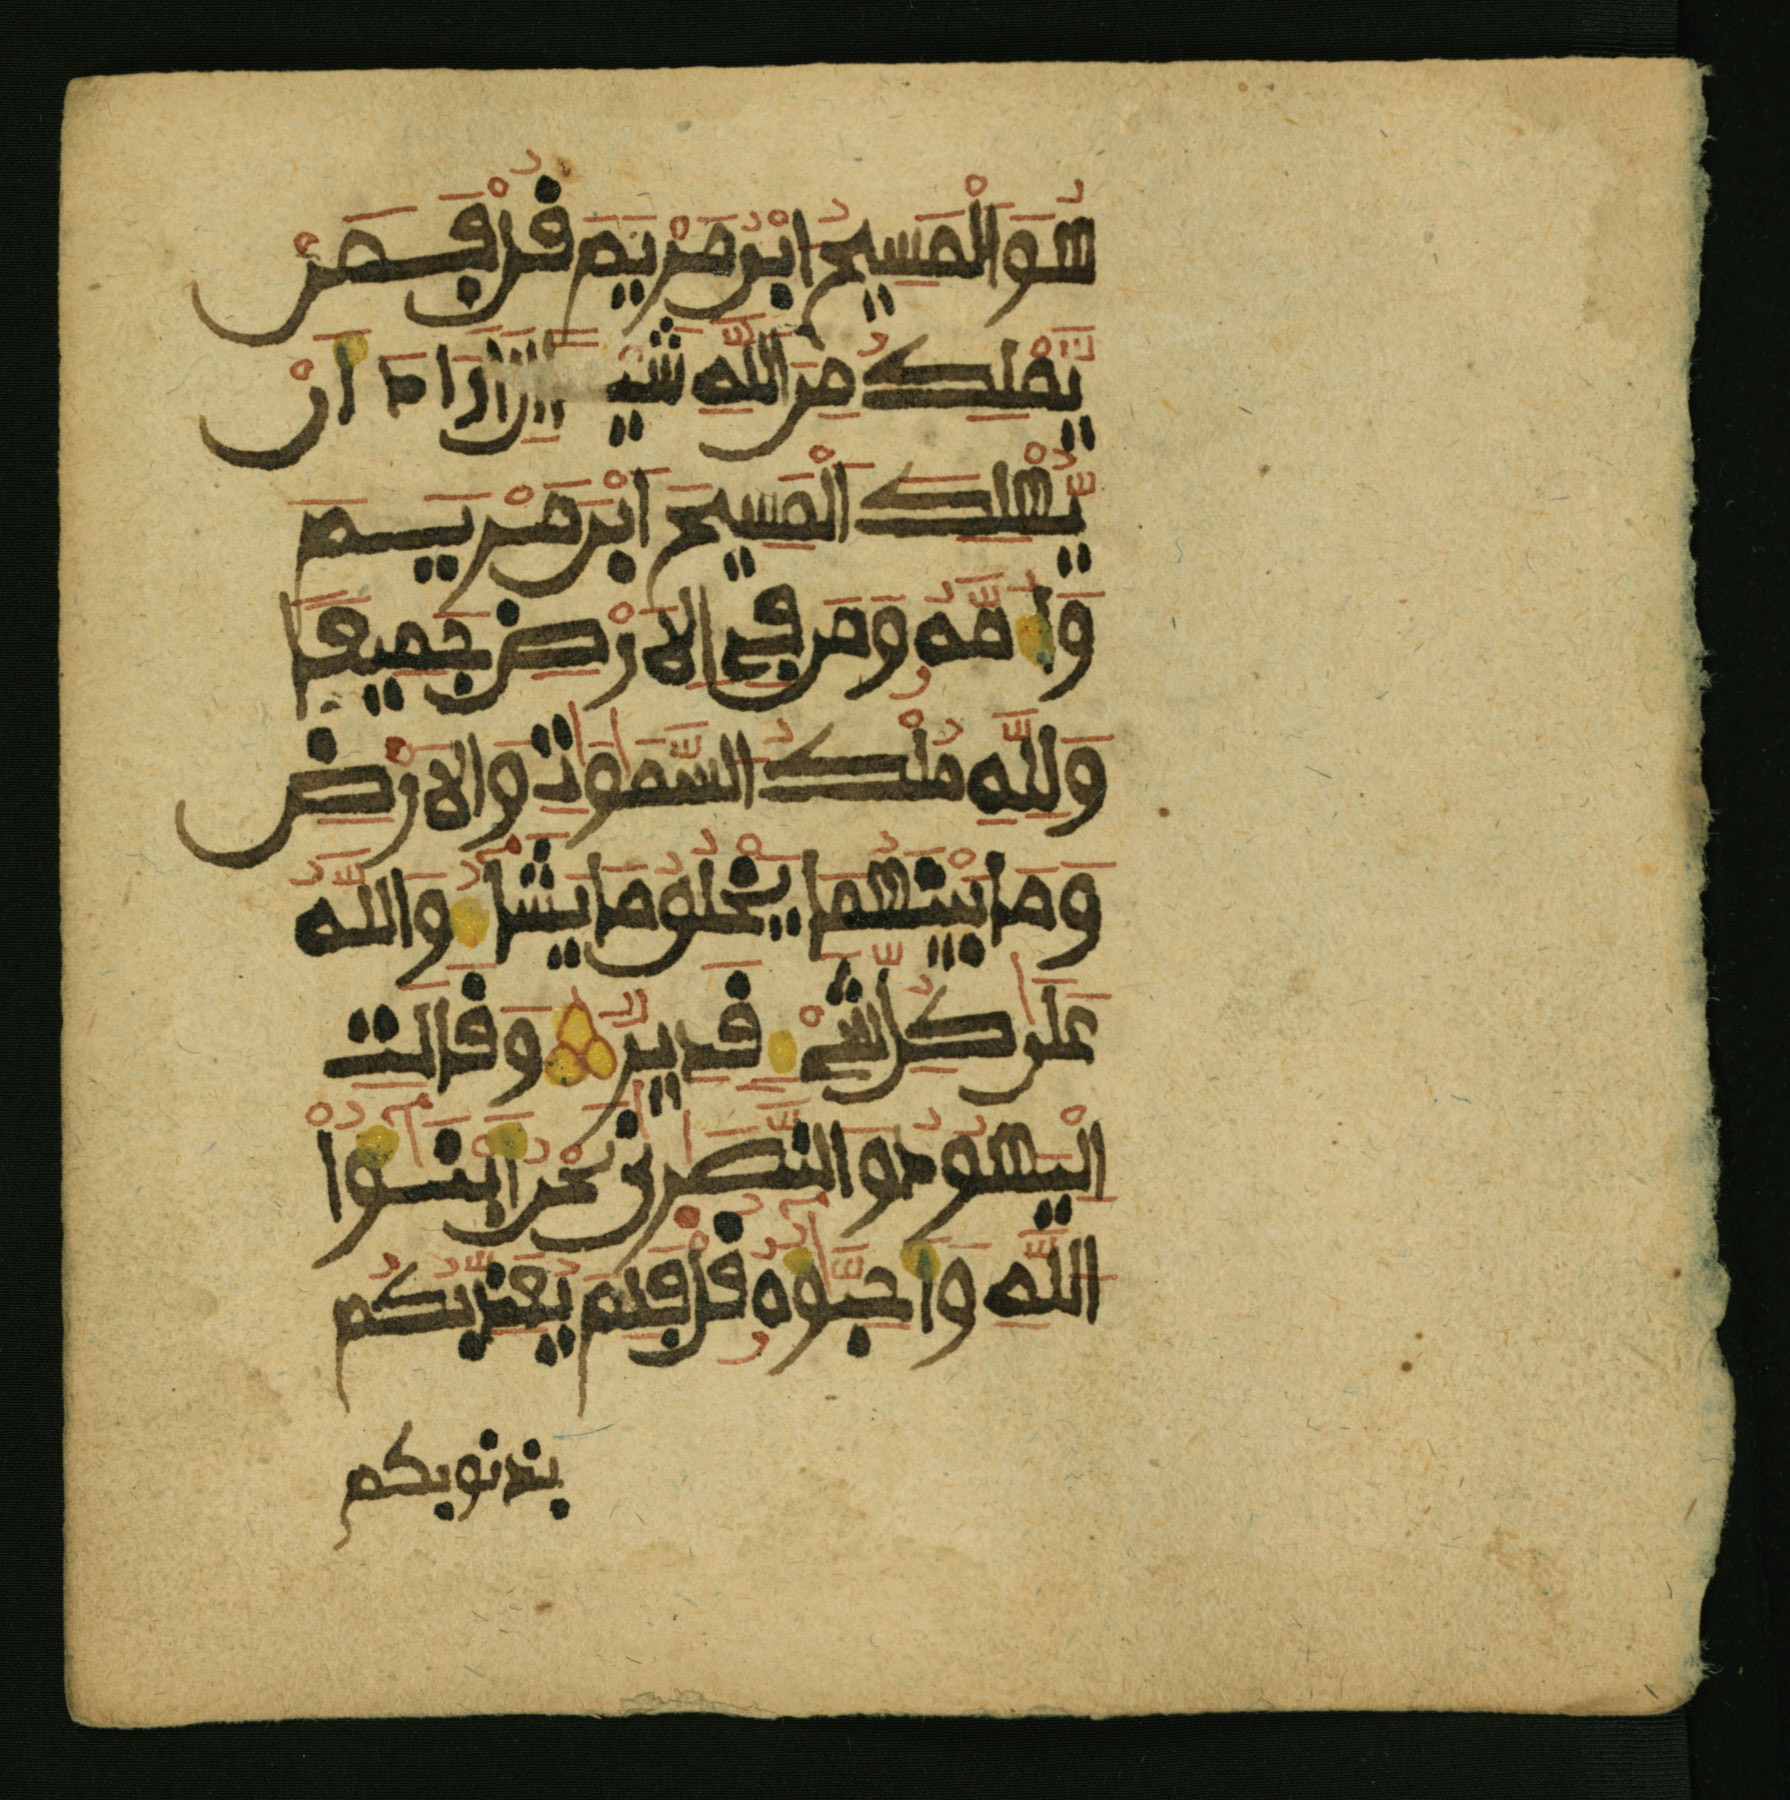 هُوَ الْمَسِيحُ ابْنُ مَرْيَمَ قُلْ فَمَنْ
يَّمْلِكُ مِنَ اللَّهِ شَيْـًٔا اِنْ اَرَادَ أَنْ
يُّهْلِكَ الْمَسِيحَ ابْنَ مَرْيَمَ
وَأُمَّهُ وَمَن فِي الَارْضِ جَمِيعًا
وَلِلَّهِ مُلْكُ السَّمَٰوَٰتِ وَالَارْضِ
وَمَا بَيْنَهُمَا يَخْلُقُ مَا يَشَآءُ وَاللَّهُ
عَلَىٰ كُلِّ شَيْءٍ قَدِيرٌ وَقَالَتِ
الْيَهُودُ وَالنَّصَٰرَىٰ نَحْنُ أَبْنَٰٓؤُاْ
اللَّهِ وَأَحِبَّٰٓؤُهُ قُلْ فَلِمَ يُعَذِّبُكُم
بذنوبكم